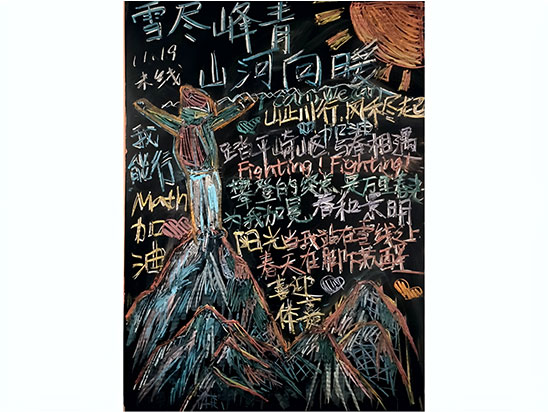 雪尽峰青
山河向暖
11.19
木线
山止川行,风禾尽起
我能行
踏平崎岖
加油
与春相遇
Fighting! Fighting!
攀登的
是万里春光
为我加冕
春和景明
Math
加油
阳光
当我站在雪线之上
春天在脚下苏醒
喜迎
体育